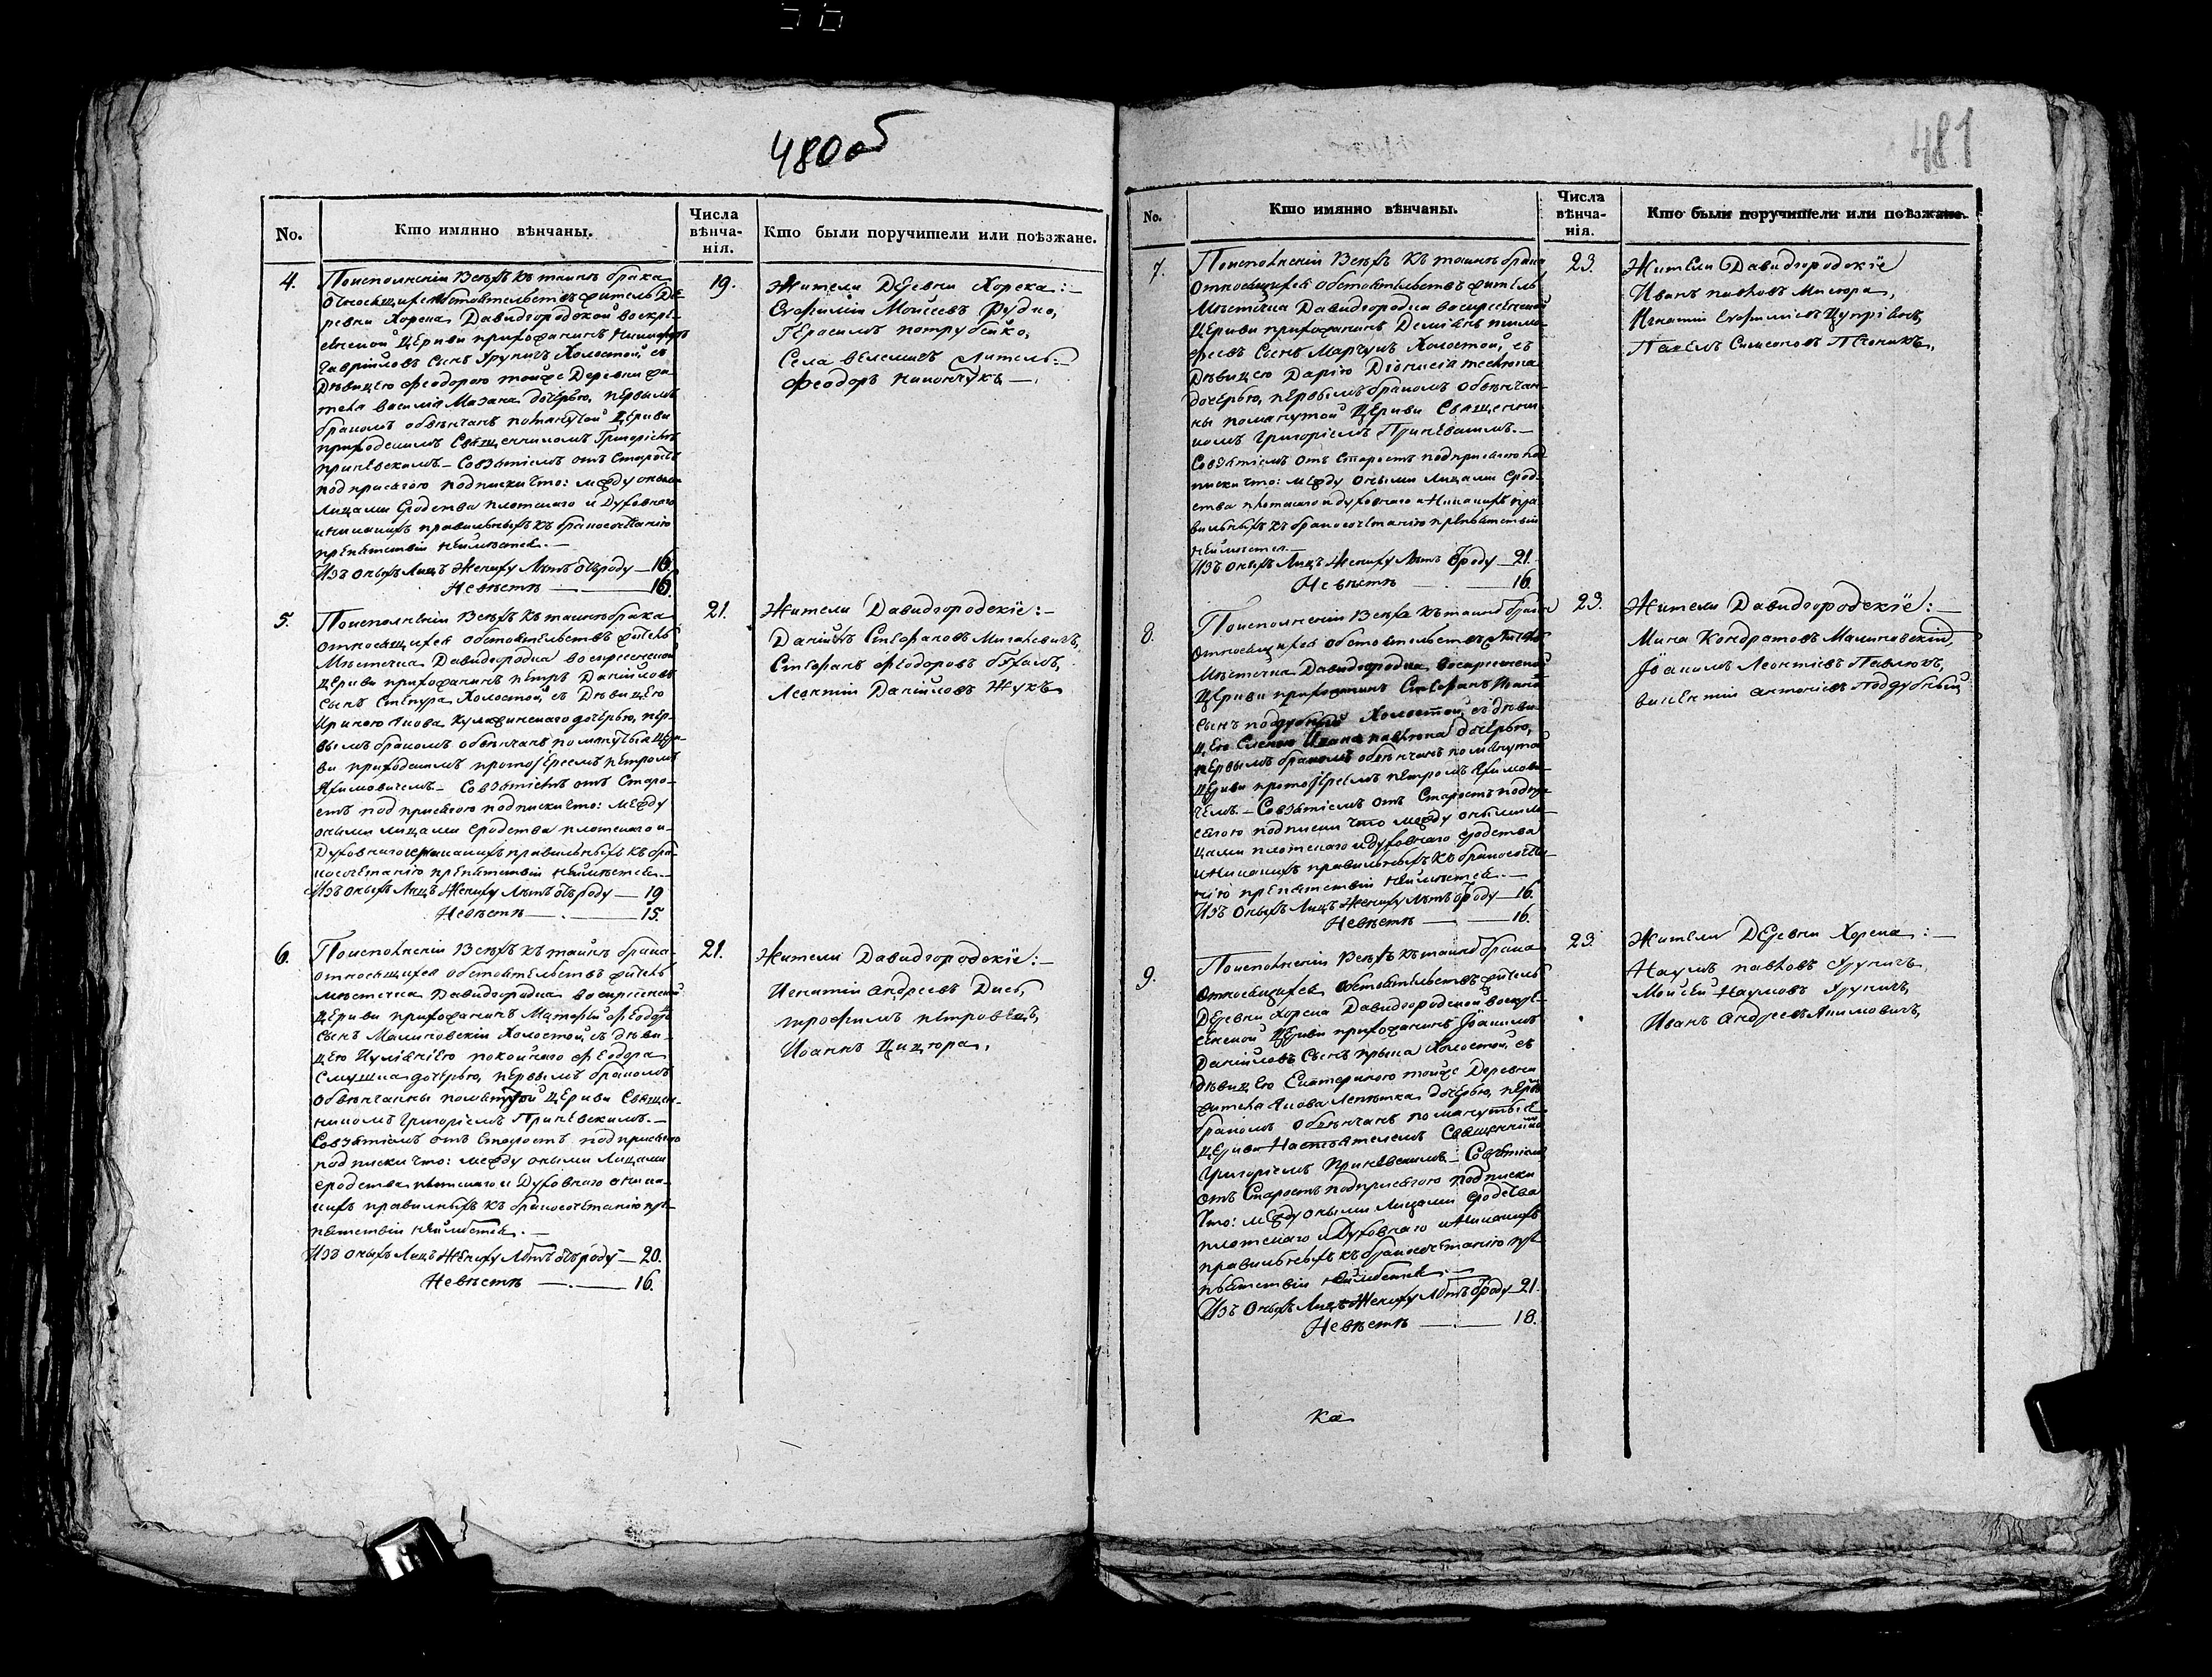 480 об
No.
Кто имянно вѣнчаны.
Числа
вѣнча-
нія.
Кто были поручители или поѣзжане.
4.
По исполненіи Всѣхъ къ таинѣ брака
относящихся обстоятельствъ житель Де-
ревни Хорска Давидгородской воскре-
сенской Церкви прихожанинъ Никифоръ
Гавриловъ Сынъ Яруничъ Холостой, съ
Дѣвицею Феодорою тойже Деревни жи-
теля Василія Мазана дочерью, первымъ
бракомъ обвѣнчанъ помянутой Церкви
приходскимъ Священникомъ Григоріемъ
Приневскимъ.— Совзятіемъ отъ Старостъ
подприсягою подписки что: между оными
Лицами Сродства плотскаго и Духовнаго
и никакихъ правильныхъ къ бракосочетанію
препятствій неимѣется.—
Изъ оныхъ Лицъ Жениху Лѣтъ отъроду — 16.
Невѣстѣ — 16.
19.
Жители Деревни Хорска:—
Евфимій Моисеевъ Рудко,
Герасимъ Петрубейко,
Села Велемичъ Житель:—
Феодоръ Никончукъ —.
5.
По исполненіи Всѣхъ къ таинѣ брака
относящихся обстоятельствъ житель
Мѣстечка Давидгородка воскресенской
Церкви прихожанинъ Петръ Даніиловъ
Сынъ Степура Холостой, съ Дѣвицею
Ириною Якова Кулажинскаго дочерью, пер-
вымъ бракомъ обвѣнчанъ помянутыя Церк-
ви приходскимъ протоіереемъ Петромъ
Якимовичемъ.— Совзятіемъ отъ Старо-
стъ под присягою подписки что: между
оными лицами сродства плотскаго и
Духовнаго и никакихъ правильныхъ къ бра-
косочетанію препятствій неимѣется.—
Изъ оныхъ Лицъ Жениху Лѣтъ отъроду — 19
Невѣстѣ — 15.
21.
Жители Давидгородскіе:—
Даніилъ Стефановъ Мигалевичъ,
Стефанъ Феодоровъ
Леонтій Даніиловъ Жукъ
6.
По исполненіи Всѣхъ къ таинѣ брака
относящихся обстоятельствъ житель
мѣстечка Давидгородка воскресенской
Церкви прихожанинъ Матфей Феодора
сынъ Малиновскій Холостой, съ дѣви-
цею Іуліаніею покойнаго Феодора
дочерью, первымъ бракомъ
обвѣнчанны помянутой Церкви Священ-
никомъ Григоріемъ Приневскимъ.—
Совзятіемъ отъ Старостъ под присягою
подписки что: между оными Лицами
сродства плотскаго и Духовнаго и ника-
кихъ правильныхъ къ бракосочетанію пре-
пятствій неимѣется.—
Изъ оныхъ Лицъ Жениху Лѣтъ отъ роду — 20.
Невѣстѣ — 16.
21.
Жители Давидгородскіе:—
Игнатій Андреевъ
Трофимъ Петровецъ,
Иоаннъ Цицюра,
481
No.
Кто имянно вѣнчаны.
Числа
вѣнча-
нія.
Кто были поручители или поѣзжане.
7.
По исполненіи Всѣхъ къ таинѣ брака
относящихся обстоятельствъ житель
Мѣстечка Давидгородка воскресенской
Церкви прихожанинъ Демьянъ Тимо-
феевъ Сынъ Марчукъ Холостой, съ
Дѣвицею Даріею Діонисія
дочерью, первымъ бракомъ обвѣнчан-
ны помянутой Церкви Священни-
комъ Григоріемъ Приневскимъ.—
Совзятіемъ отъ Старостъ подприсягою под-
писки что: между оными лицами срод-
ства плотскаго и духовнаго и Никакихъ пра-
вильныхъ къ бракосочетанію препятствій
неимѣется.—
Изъ оныхъ Лицъ Жениху Лѣтъ отроду — 21.
Невѣстѣ — 16.
23.
Жители Давидгородскіе
Иванъ Павловъ Мисюра,
Игнатій Евфиміевъ
Павелъ Симеоновъ
8.
По исполненіи Всѣхъ къ таинѣ брака
относящихся обстоятельствъ житель
Мѣстечка Давидгородка, воскресенской
Церкви прихожанинъ Стефанъ Ивана
Сынъ поддубный Холостой, съ дѣви-
цею Еленою Ивана павлюка дочерью,
первымъ бракомъ обвѣнчанъ помянутой
Церкви протоіереемъ Петромъ Якимови-
чемъ.— Совзятіемъ отъ Старостъ подпри-
сягою подписки что между оными ли-
цами плотскаго и духовнаго сродства
и Никакихъ правильныхъ къ бракосочета-
нію препятствій неимѣется.—
Изъ оныхъ Лицъ Жениху Лѣтъ отроду — 16.
Невѣстѣ — 16.
23.
Жители Давидгородскіе:—
Мина Кондратовъ Малиновскій,
Іоакимъ Леонтіевъ Павлюкъ,
Викентій Антоніевъ Поддубный
9.
По исполненіи Всѣхъ къ таинѣ брака
относящихся обстоятельствъ житель
Деревни Хорска Давидгородской воскре-
сенской Церкви прихожанинъ Іоакимъ
Даніиловъ Сынъ Крыка Холостой, съ
дѣвицею Екатериною тойже Деревни
жителя Якова дочерью, первымъ
бракомъ обвѣнчанъ помянутыя
Церкви Настоятелемъ Священникомъ
Григоріемъ Приневскимъ.— Совзятіемъ
отъ Старостъ подприсягою подписки
что: между оными Лицами сродства
плотскаго и Духовнаго и Никакихъ
правильныхъ къ бракосочетанію пре-
пятствій неимѣется.—
Изъ оныхъ Лицъ Жениху Лѣтъ отроду — 21.
Невѣстѣ — 18.
23.
Жители Деревни Хорска:—
Наумъ Павловъ Яруничъ,
Мойсей Наумовъ Яруничъ,
Иванъ Андреевъ Акимовичъ,